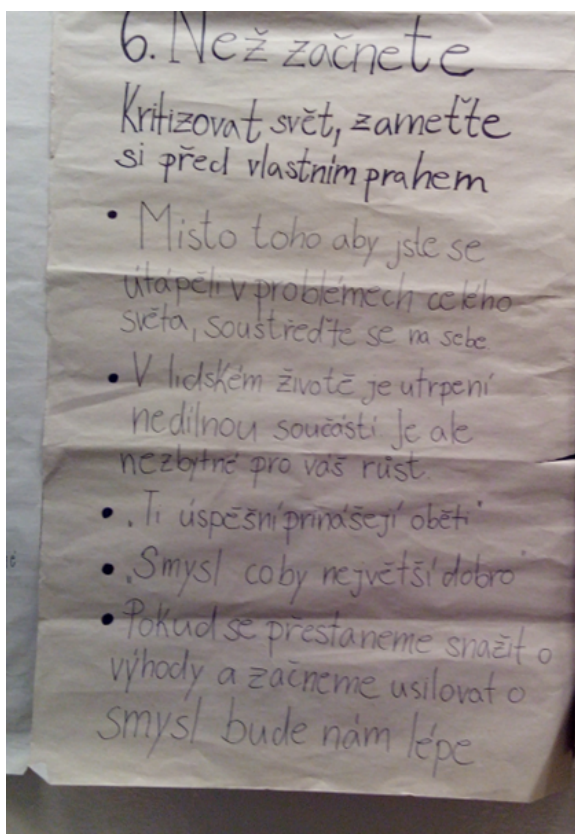 6. Než začnete
Kritizovat svět, zameťte
si před vlastním prahem
• Místo toho aby jste se
útápěli v problémech celého
světa, soustřeďte se na sebe
• V lidském životě je utrpení
nedílnou součástí. Je ale
nezbytné pro váš růst.
• „Ti úspěšní přinášejí oběti"
• „Smysl coby největší dobro"
• Pokud se přestaneme snažit o
výhody a začneme usilovat o
smysl bude nám lépe